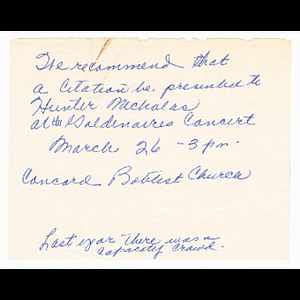 We recommend that
a Citation be presented to
Hunter Nicholas
at the Goldenaires Concert
March 26 - 3 pm.
Concord Baptist Church
Last year there was a
capacity crowd.